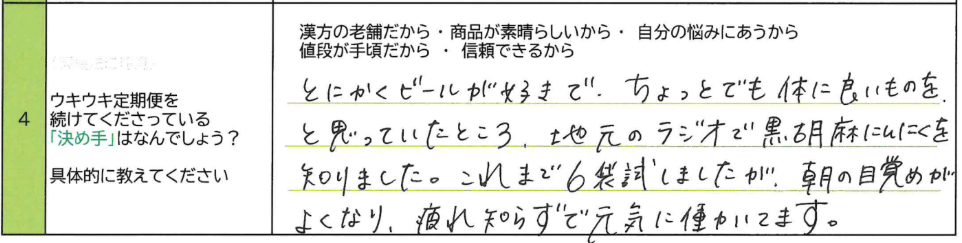 漢方の老舗だから・商品が素晴らしいから・ 自分の悩みにあうから
値段が手頃だから ・ 信頼できるから
4
ウキウキ定期便を
続けてくださっている
「決め手」はなんでしょう？
具体的に教えてください
とにかくビールが好きで、ちょっとでも体に良いものを
と思っていたところ、地元のラジオで黒胡麻にんにくを
知りました。これまで6袋試しましたが、朝の目覚めが
よくなり、疲れ知らずで元気に働かいてます。